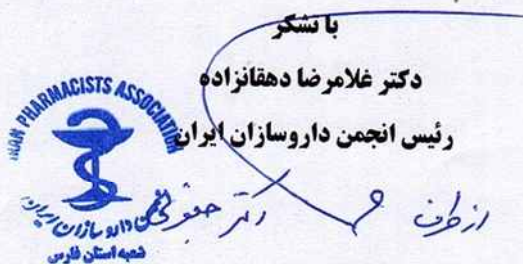 با تشکر
دکتر غلامرضا دهقانزاده
رئیس انجمن داروسازان ایران
از طرف
دکتر
IRAN PHARMACISTS ASSOCIATION
انجمن داروسازان ایران
شعبه استان فارس